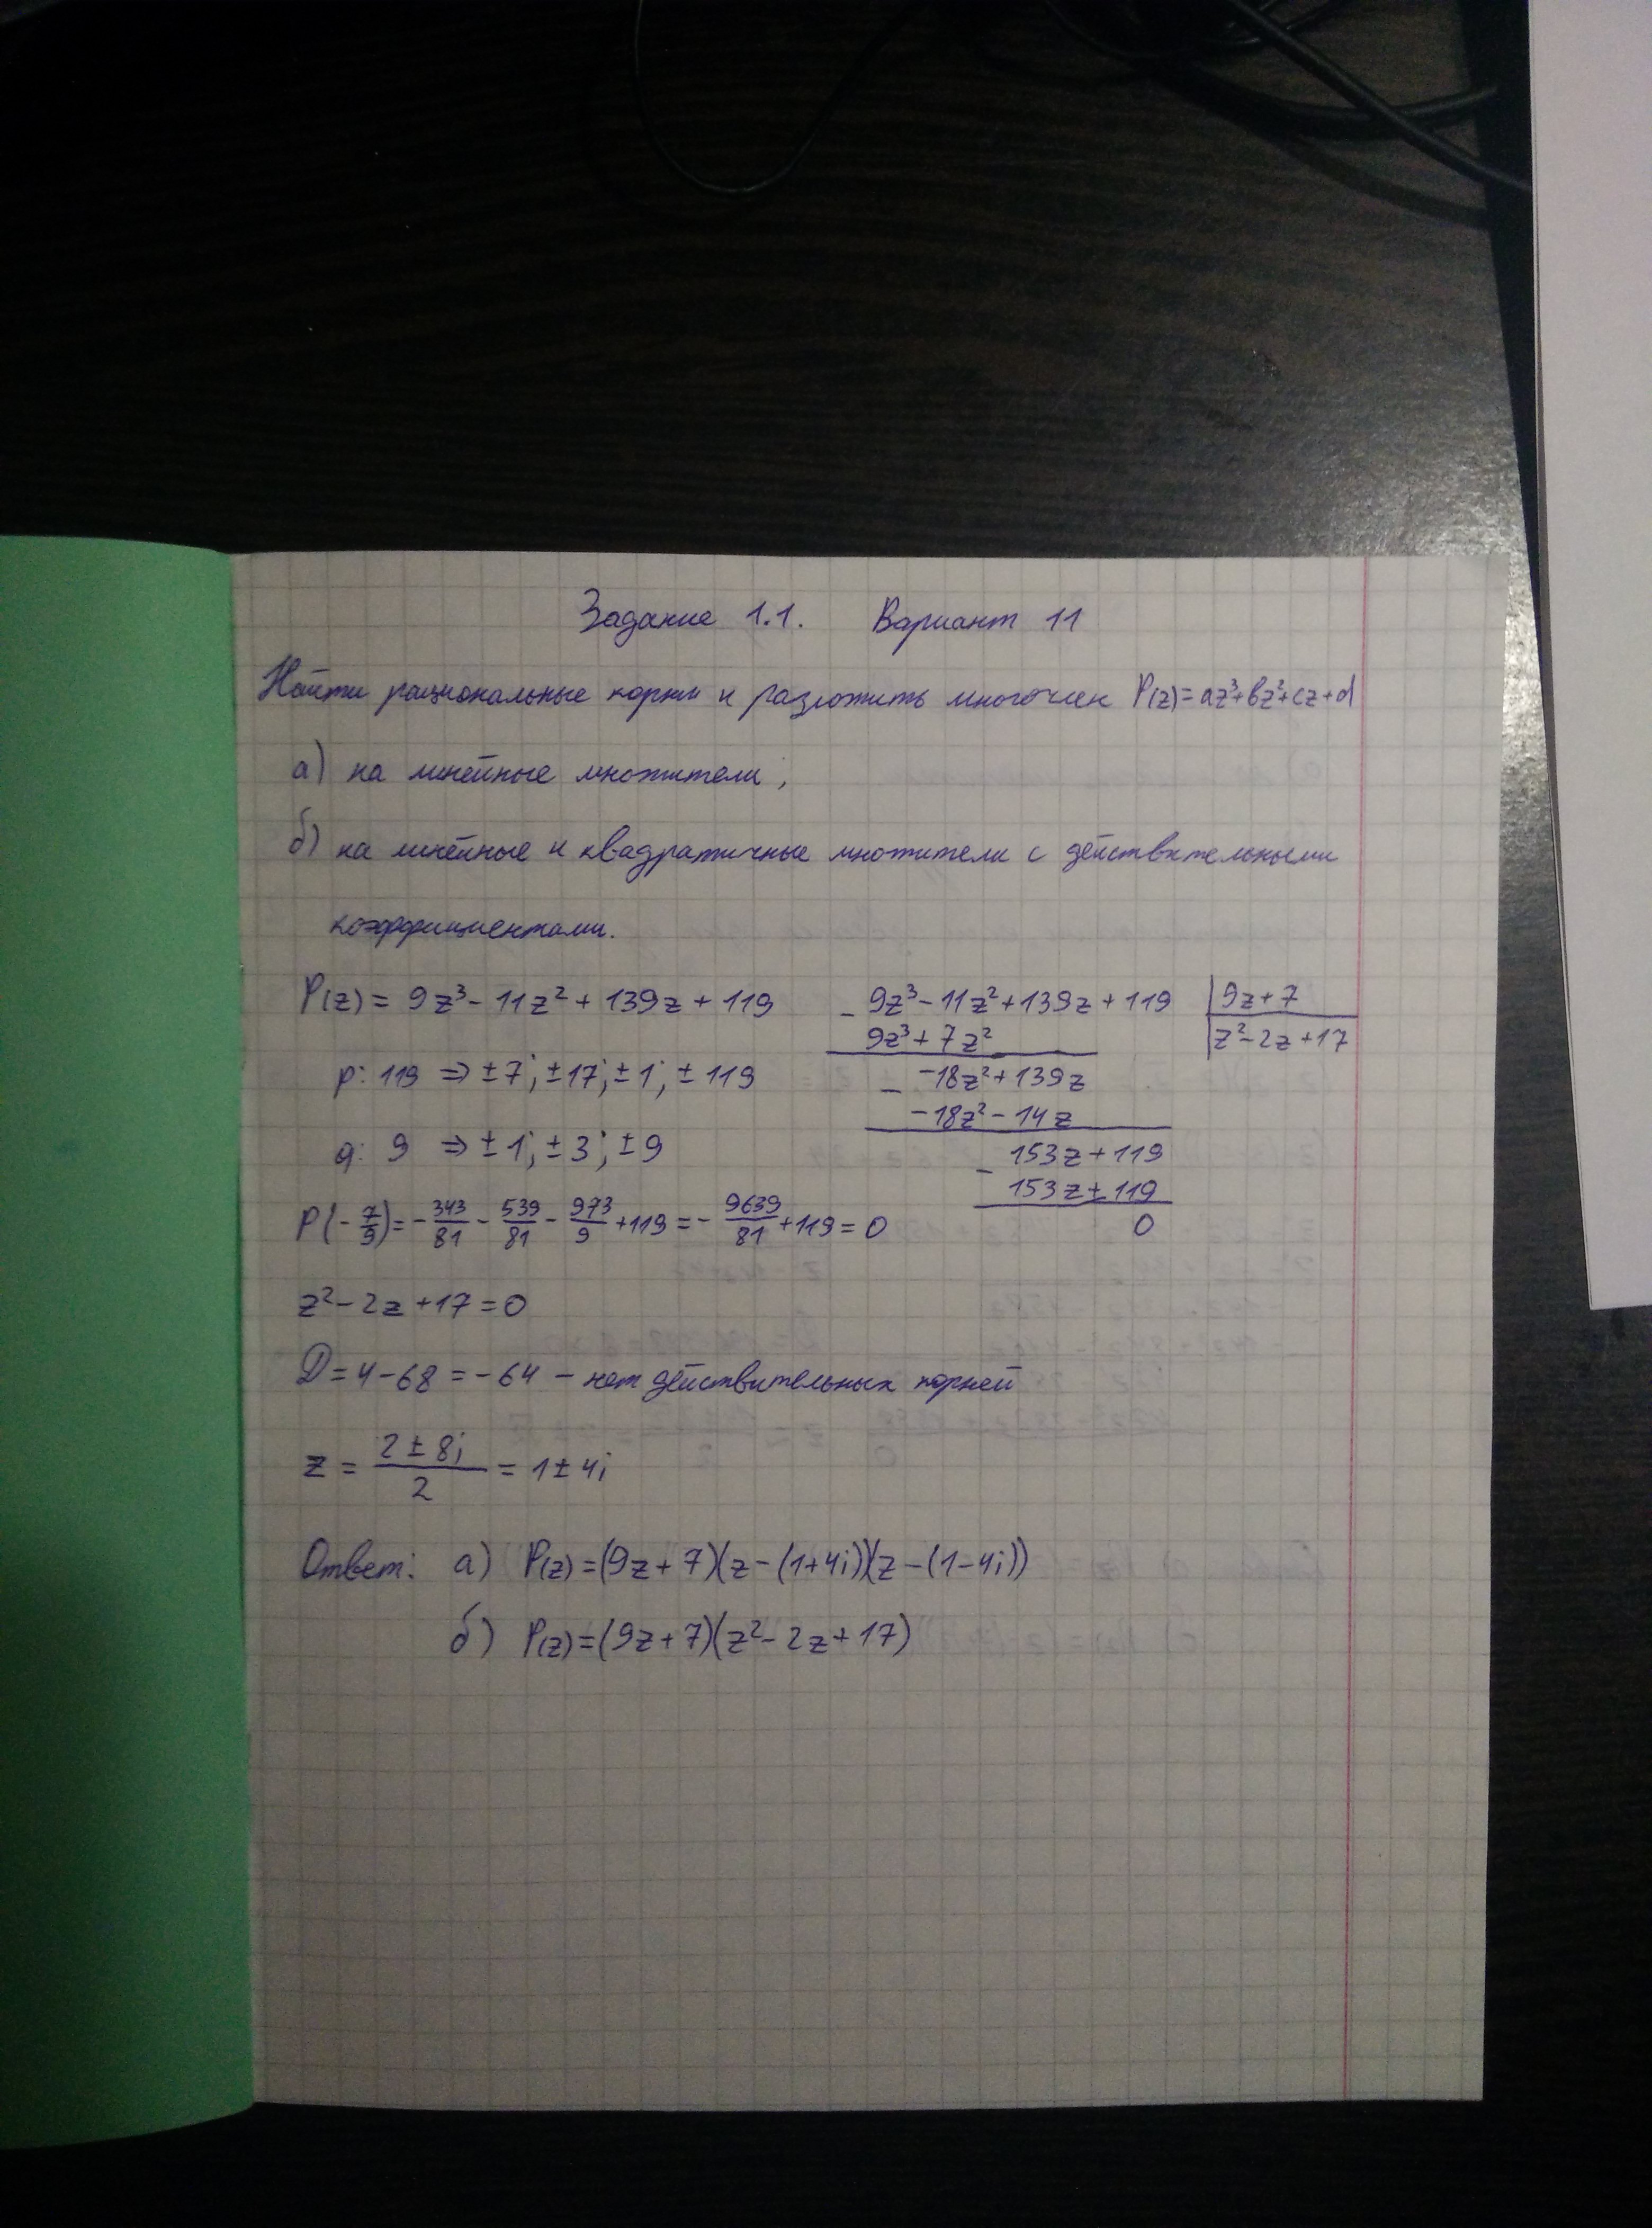 Задание 1.1. Вариант 11
Найти рациональные корни и разложить многочлен P(z)=az³+bz²+cz+d
а) на линейные множители;
б) на линейные и квадратичные множители с действительными
коэффициентами.
P(z) = 9z³ - 11z² + 139z + 119
p: 119 ⇒ ±7; ±17; ±1; ±119
q: 9 ⇒ ±1; ±3; ±9
P(-7/9) = -343/81 - 539/81 - 973/9 + 119 = -9639/81 + 119 = 0
- 9z³ - 11z² + 139z + 119 | 9z + 7
9z³ + 7z² | z² - 2z + 17
- -18z² + 139z
-18z² - 14z
- 153z + 119
153z + 119
0
z² - 2z + 17 = 0
D = 4 - 68 = -64 - нет действительных корней
z = (2 ± 8i)/2 = 1 ± 4i
Ответ: а) P(z) = (9z + 7)(z - (1+4i))(z - (1-4i))
б) P(z) = (9z + 7)(z² - 2z + 17)